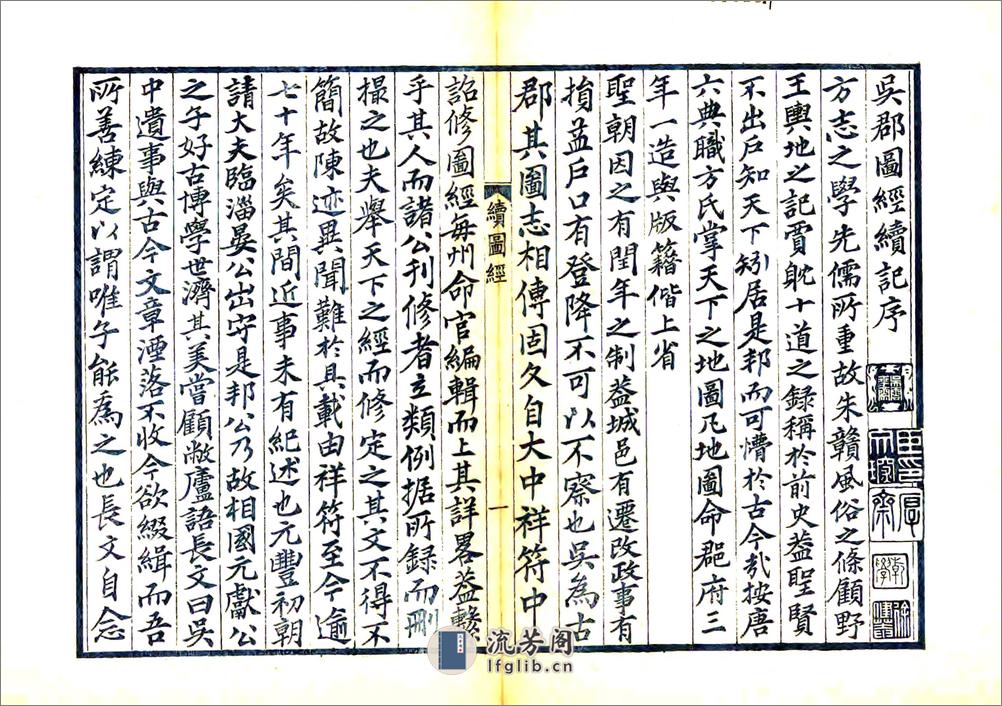 吳郡圖經續記序
方志之學先儒所重故朱贛風俗之條顧野
王輿地之記賈耽十道之錄稱於前史蓋聖賢
不出戶知天下矧居是邦而可懵於古今哉按唐
六典職方氏掌天下之地圖凡地圖命郡府三
年一造與版籍偕上省
聖朝因之有閏年之制蓋城邑有遷改政事有
損益戶口有登降不可以不察也吳為古
郡其圖志相傳固久自大中祥符中
續圖經
一
詔修圖經每州命官編輯而上其詳畧蓋繫
乎其人而諸公刊修者立類例据所錄而刪
撮之也夫舉天下之經而修定之其文不得不
簡故陳迹異聞難於具載由祥符至今逾
七十年矣其間近事未有紀述也元豐初朝
請大夫臨淄晏公出守是邦公乃故相國元獻公
之子好古博學世濟其美嘗顧敝廬語長文曰吳
中遺事與古今文章湮落不收今欲綴緝而吾
所善練定以謂唯子能爲之也長文自念
流芳阁
lfglib.cn